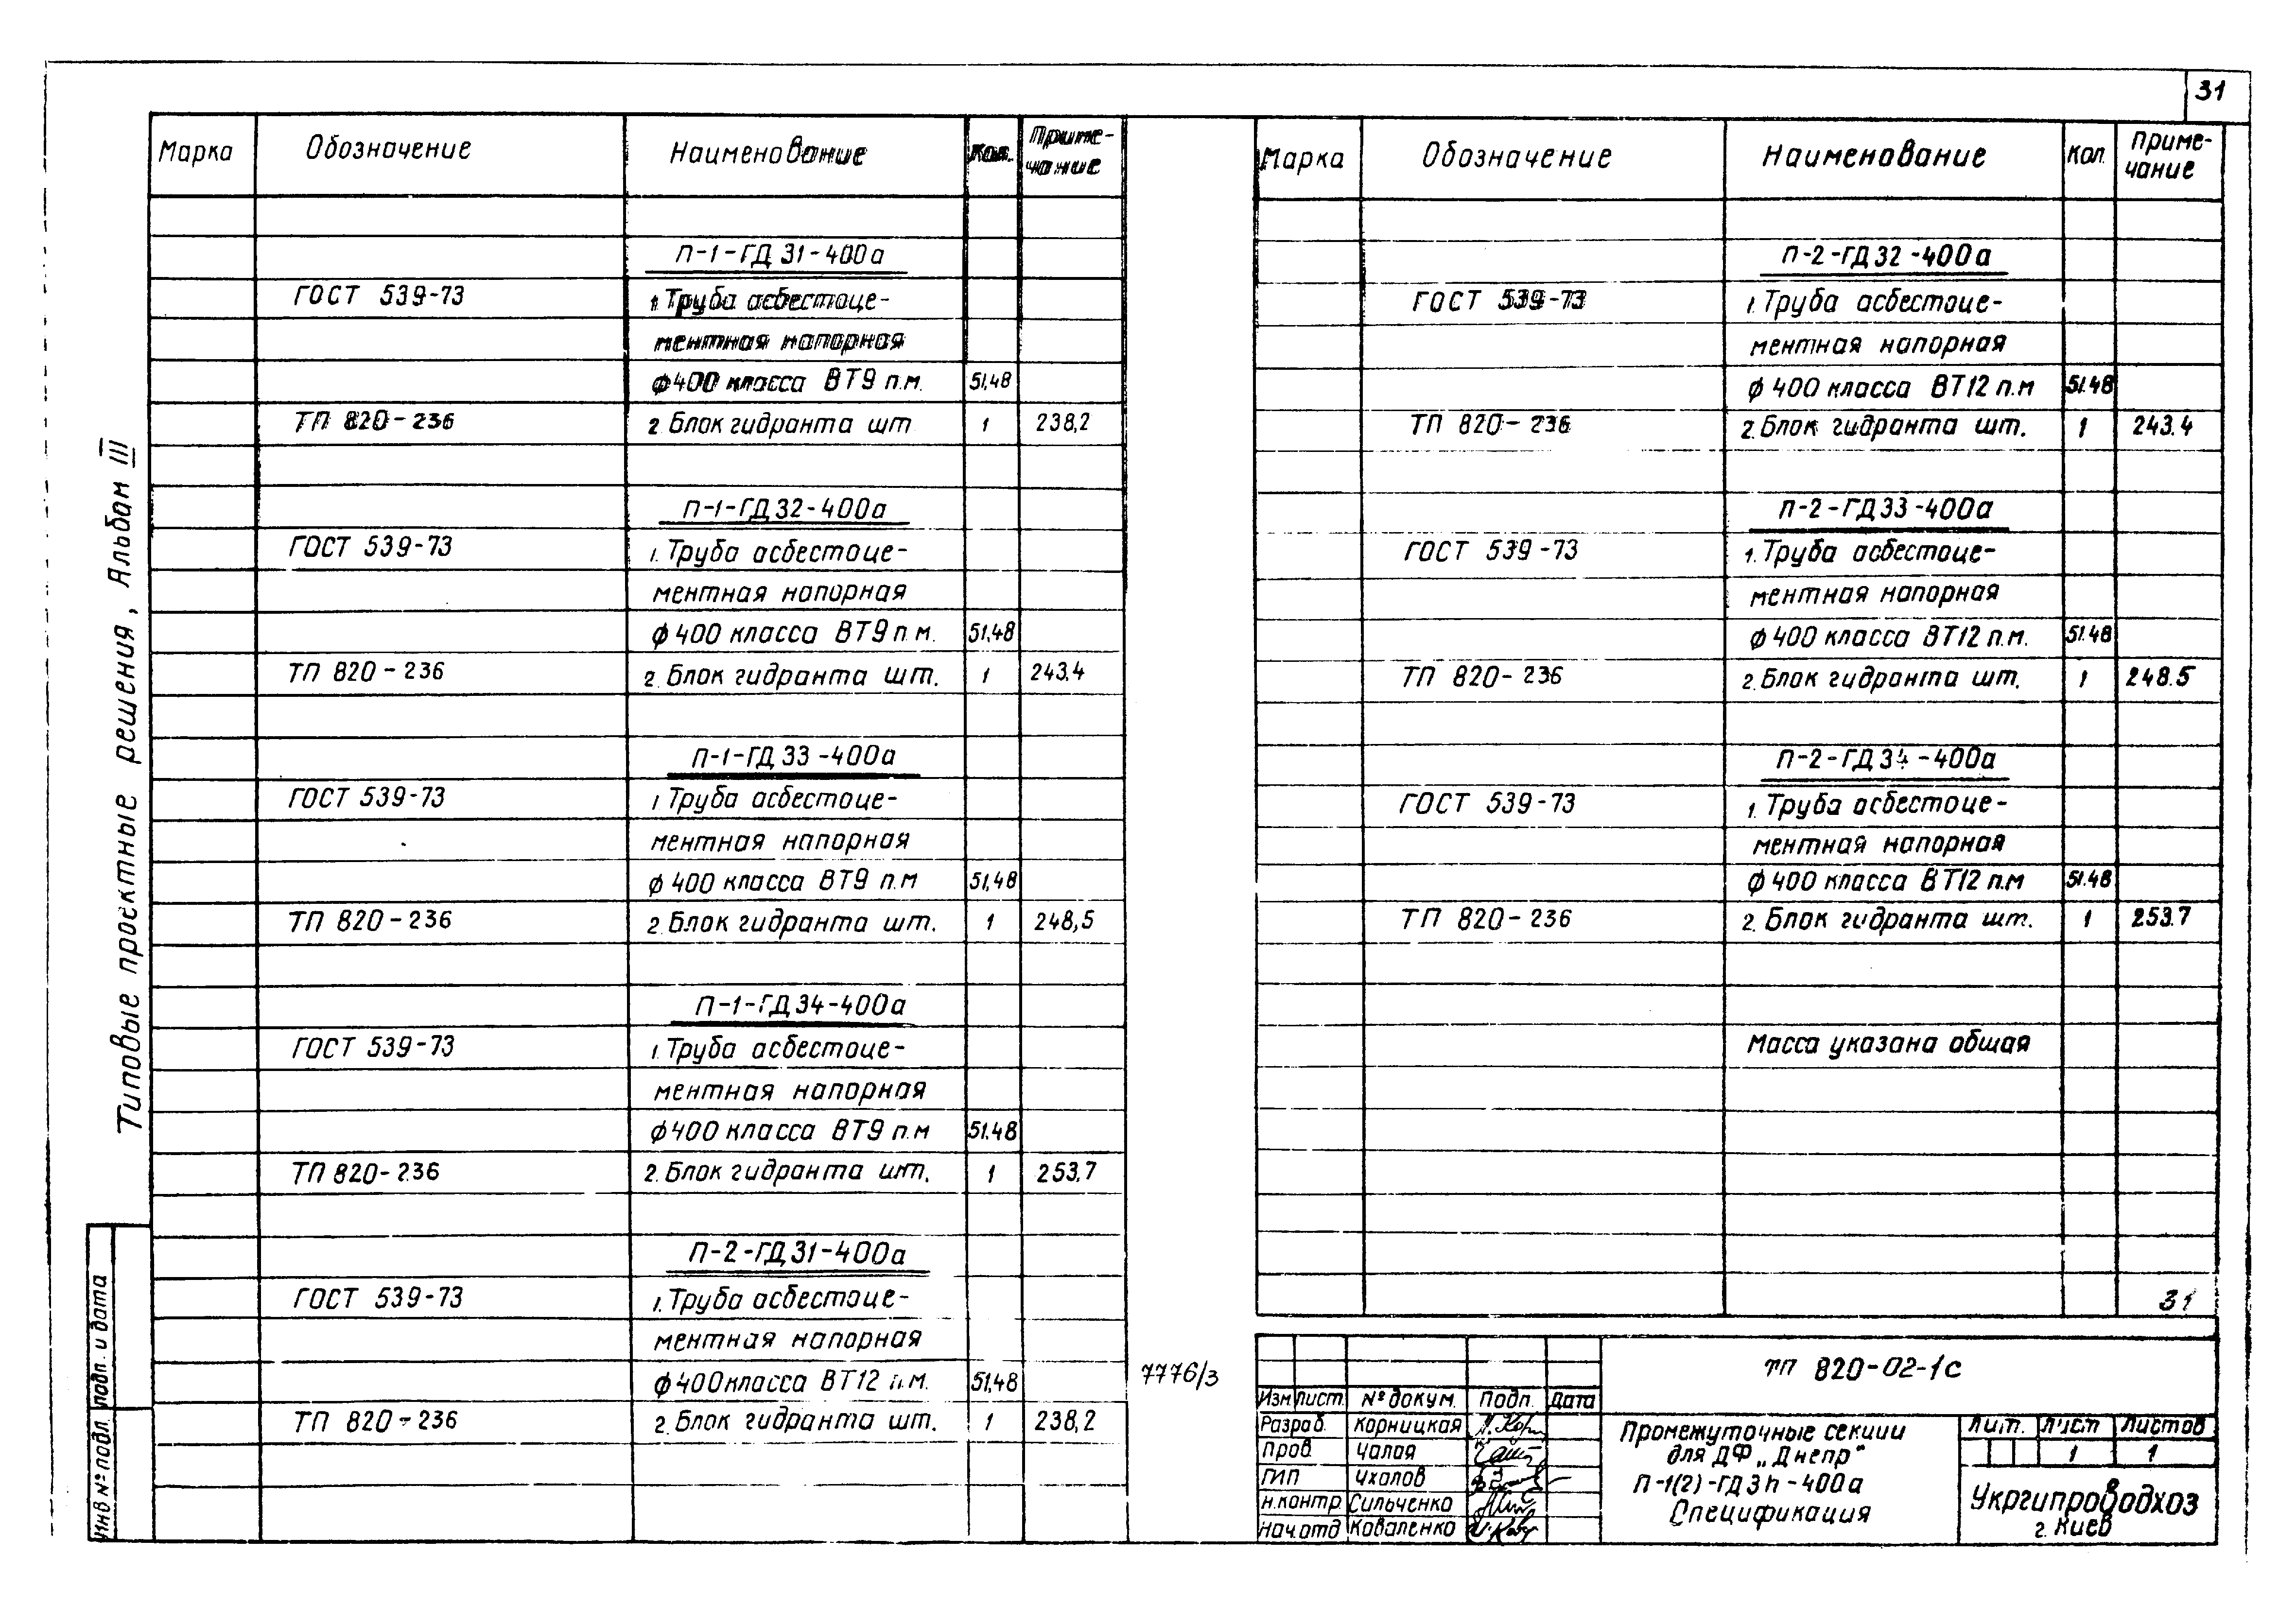 31
Типовые проектные решения, Альбом III
Марка Обозначение Наименование Кол. Приме-
чание
П-1-ГД31-400а
ГОСТ 539-73 1. Труба асбестоце-
ментная напорная
ф400 класса ВТ9 п.м. 51,48
ТП 820-236 2. Блок гидранта шт 1 238,2
П-1-ГД32-400а
ГОСТ 539-73 1. Труба асбестоце-
ментная напорная
ф400 класса ВТ9 п.м. 51,48
ТП 820-236 2. Блок гидранта шт. 1 243,4
П-1-ГД33-400а
ГОСТ 539-73 1. Труба асбестоце-
ментная напорная
ф400 класса ВТ9 п.м 51,48
ТП 820-236 2. Блок гидранта шт. 1 248,5
П-1-ГД34-400а
ГОСТ 539-73 1. Труба асбестоце-
ментная напорная
ф400 класса ВТ9 п.м 51.48
ТП 820-236 2. Блок гидранта шт. 1 253,7
П-2-ГД31-400а
ГОСТ 539-73 1. Труба асбестоце-
ментная напорная
ф400 класса ВТ12 п.м. 51,48
ТП 820-236 2. Блок гидранта шт. 1 238,2
Марка Обозначение Наименование Кол. Приме-
чание
П-2-ГД32-400а
ГОСТ 539-73 1. Труба асбестоце-
ментная напорная
ф400 класса ВТ12 п.м 51.48
ТП 820-236 2. Блок гидранта шт. 1 243.4
П-2-ГД33-400а
ГОСТ 539-73 1. Труба асбестоце-
ментная напорная
ф400 класса ВТ12 п.м. 51.48
ТП 820-236 2. Блок гидранта шт. 1 248.5
П-2-ГД34-400а
ГОСТ 539-73 1. Труба асбестоце-
ментная напорная
ф400 класса ВТ12 п.м 51.48
ТП 820-236 2. Блок гидранта шт. 1 253.7
Масса указана общая
31
7776/3
ТП 820-02-1с
Изм Лист № докум. Подп. Дата
Разраб. Корницкая
Пров. Чалая
ГИП Ухалов
Н.контр. Сильченко
Нач.отд Коваленко
Промежуточные секции
для ДФ „Днепр"
П-1(2)-ГД3n-400а
Спецификация
Лит. Лист Листов
1 1
Укргипроводхоз
г. Киев
Инв № подл. Подп. и дата